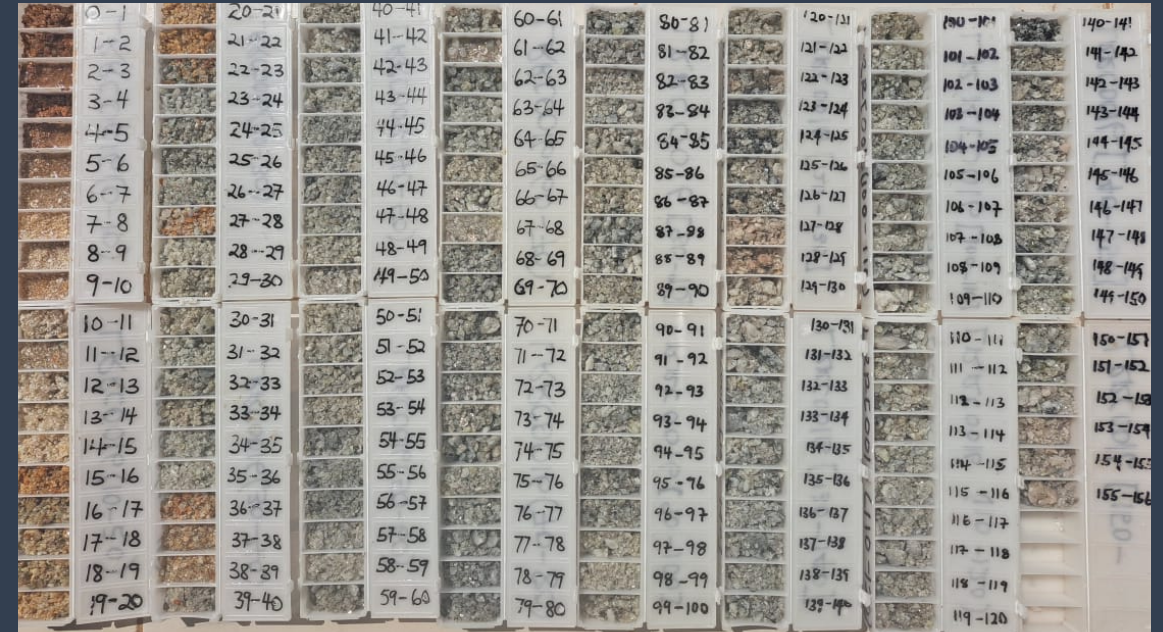 0-1
1-2
2-3
3-4
4-5
5-6
6-7
7-8
8-9
9-10
10-11
11-12
12-13
13-14
14-15
15-16
16-17
17-18
18-19
19-20
20-21
21-22
22-23
23-24
24-25
25-26
26-27
27-28
28-29
29-30
30-31
31-32
32-33
33-34
34-35
35-36
36-37
37-38
38-39
39-40
40-41
41-42
42-43
43-44
44-45
45-46
46-47
47-48
48-49
49-50
50-51
51-52
52-53
53-54
54-55
55-56
56-57
57-58
58-59
59-60
60-61
61-62
62-63
63-64
64-65
65-66
66-67
67-68
68-69
69-70
70-71
71-72
72-73
73-74
74-75
75-76
76-77
77-78
78-79
79-80
80-81
81-82
82-83
83-84
84-85
85-86
86-87
87-88
88-89
89-90
90-91
91-92
92-93
93-94
94-95
95-96
96-97
97-98
98-99
99-100
120-121
121-122
122-123
123-124
124-125
125-126
126-127
127-128
128-129
129-130
130-131
131-132
132-133
133-134
134-135
135-136
136-137
137-138
138-139
139-140
100-101
101-102
102-103
103-104
104-105
105-106
106-107
107-108
108-109
109-110
110-111
111-112
112-113
113-114
114-115
115-116
116-117
117-118
118-119
119-120
140-141
141-142
142-143
143-144
144-145
145-146
146-147
147-148
148-149
149-150
150-151
151-152
152-153
153-154
154-155
155-156